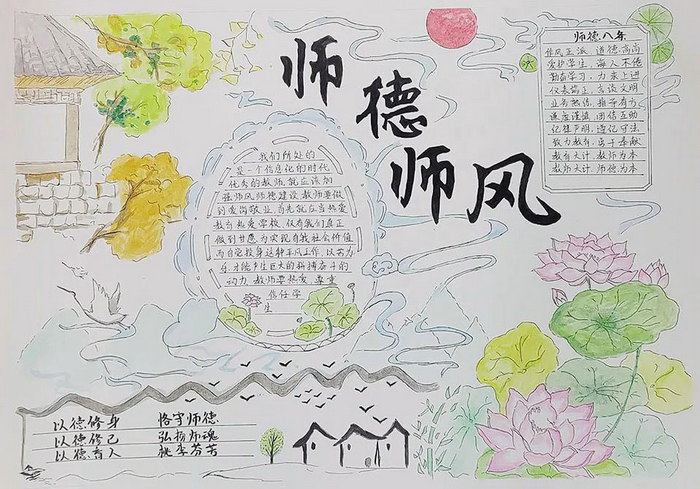 师德师风
我们所处的
是一个信息化的时代
优秀的教师,就应该加
强师风师德建设,教师要做
到爱岗敬业,首先就应当热爱
教育,热爱学校,仅有我们真正
做到甘愿为实现自我社会价值
而自觉投身这种平凡工作,以苦为
乐,才能产生巨大的拼搏奋斗的
动力,教师要热爱、尊重、
信任学
生
师德八条
作风正派 道德高尚
爱护学生 诲人不倦
勤奋学习 力求上进
仪表端正 言谈文明
业务熟练 指导有力
团结互助
纪律严明 遵纪守法
致力教育 乐于奉献
教育大计 教师为本
教师大计 师德为本
以德修身 恪守师德
以德修己 弘扬师魂
以德育人 桃李芬芳